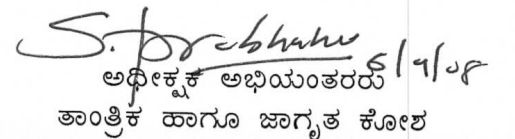 S. Prabhahu 5/9/08
ಅಧೀಕ್ಷಕ ಅಭಿಯಂತರರು
ತಾಂತ್ರಿಕ ಹಾಗೂ ಜಾಗೃತ ಕೋಶ